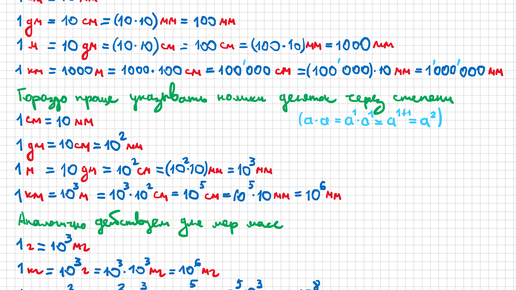 1 дм = 10 см = (10·10) мм = 100 мм
1 м = 10 дм = (10·10) см = 100 см = (100·10) мм = 1000 мм
1 км = 1000 м = 1000·100 см = 100'000 см = (100'000)·10 мм = 1'000'000 мм
Гораздо проще указывать нолики десяток через степени
1 см = 10 мм (a·a = a¹·a¹ = a¹⁺¹ = a²)
1 дм = 10 см = 10² мм
1 м = 10 дм = 10² см = (10²·10) мм = 10³ мм
1 км = 10³ м = 10³·10² см = 10⁵ см = 10⁵·10 мм = 10⁶ мм
Аналогично действуем для мер масс
1 г = 10³ мг
1 кг = 10³ г = 10³·10³ мг = 10⁶ мг